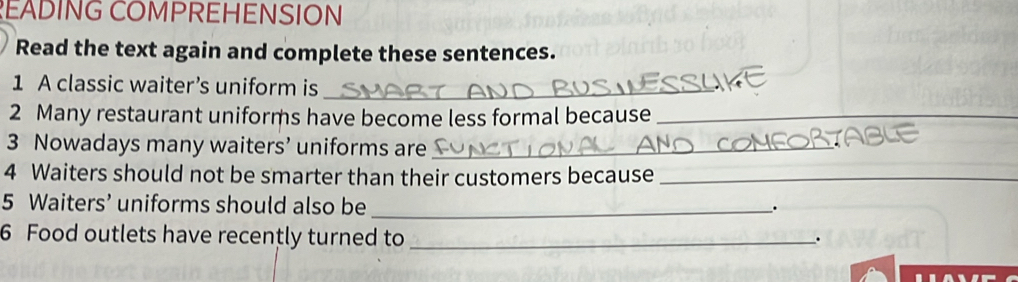 READING COMPREHENSION
Read the text again and complete these sentences.
1 A classic waiter's uniform is SMART AND BUSINESSLIKE
2 Many restaurant uniforms have become less formal because
3 Nowadays many waiters' uniforms are FUNCTIONAL AND COMFORTABLE
4 Waiters should not be smarter than their customers because
5 Waiters' uniforms should also be .
6 Food outlets have recently turned to .